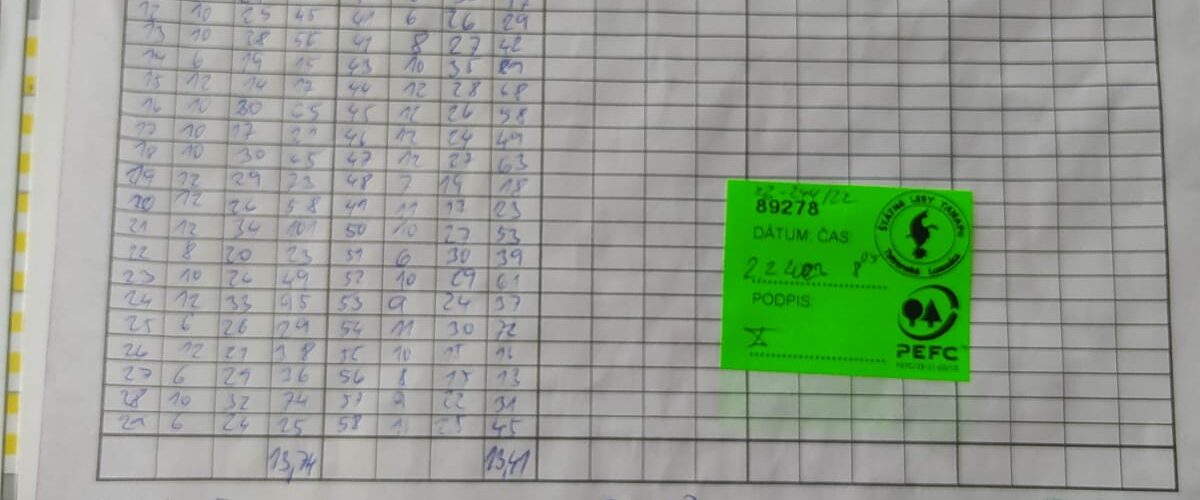 12 10 25 45 41 6 26 29
13 10 28 56 42 8 27 42
14 6 19 15 43 10 35 89
15 12 14 17 44 12 28 68
16 10 30 65 45 12 26 58
17 10 17 21 46 12 24 49
18 10 30 45 47 12 27 63
19 12 29 73 48 7 19 18
20 12 26 58 49 11 17 23
21 12 34 101 50 10 27 53
22 8 20 23 51 6 30 39
23 10 26 49 52 10 29 61
24 12 33 95 53 9 24 37
25 6 26 29 54 11 30 72
26 12 21 38 55 10 15 16
27 6 29 36 56 8 15 13
28 10 32 74 57 9 22 31
29 6 24 25 58 25 45
13,74 13,41
89278
DÁTUM: ČAS:
PODPIS:
ŠTÁTNE LESY TANAPU
Tatranská Lomnica
PEFC